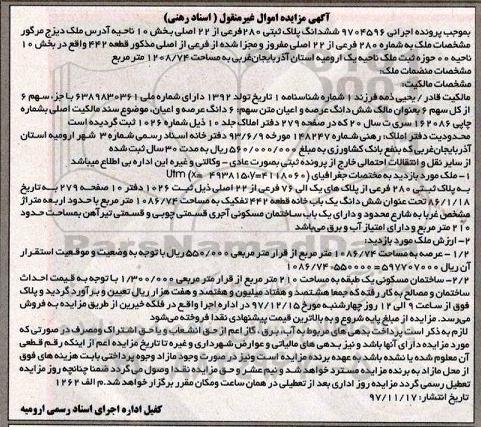 آگهی مزایده اموال غیرمنقول ( اسناد رهنی)
بموجب پرونده اجرائی ۹۷۰۴۵۹۶ ششدانگ پلاک ثبتی ۲۸۰فرعی از ۲۲ اصلی بخش ۱۰ ناحیه آدرس ملک دیزج مرگور
مشخصات ملک به شماره ۲۸۰ فرعی از ۲۲ اصلی مفروز و مجزا شده از فرعی از اصلی مذکور قطعه ۴۴۲ واقع در بخش ۱۰
ناحیه ۰۰ حوزه ثبت ملک ناحیه یک ارومیه استان آذربایجان‌غربی به مساحت ۱۲۰۸/۷۴ متر مربع
مشخصات منضمات ملک:
مشخصات مالکیت:
مالکیت قادر/ یحیی ذمه فرزند / شماره شناسنامه ۱ تاریخ تولد ۱۳۹۲ دارای شماره ملی ۶۳۸۹۸۳۰۳۶۱ با جزء سهم ۶
از کل سهم ۶ بعنوان مالک شش دانگ عرصه و اعیان متن سهم: ۶ دانگ عرصه و اعیان، موضوع سند مالکیت اصلی بشماره
چاپی ۱۶۲۰۸۶ سری ت سال ۲۰ که در صفحه ۲۷۹ دفتر املاک جلد ۱۰ ذیل شماره ۱۰۲۶ ثبت گردیده است
محدودیت دفتر املاک: رهنی شماره ۱۴۸۲۴۷ مورخ ۹۳/۶/۹ دفتر خانه اسناد رسمی شماره ۳ شهر ارومیه استان
آذربایجان‌غربی که بنفع بانک کشاورزی به مبلغ ۵۶۰/۰۰۰/۰۰۰ ریال به مدت ۳۰ سال ثبت شده
از سایر نقل و انتقالات احتمالی خارج از پرونده ثبتی بصورت عادی – وکالتی و غیره این اداره بی اطلاع میباشد
۱- ملک مورد بازدید به مختصات جغرافیای (۴۱۱۸۰۶۰=۴۹۳۸۱۵،y=x) Utm
به پلاک ثبتی ۲۸۰ فرعی از پلاک های یک الی ۷۶ فرعی از ۲۲ اصلی ذیل ثبت ۱۰۲۶ دفتر ۱۰ صفحه ۲۷۹ به تاریخ
۸۶/۱/۱۸ تحت عنوان شش دانگ یک باب خانه قطعه ۴۴۲ تفکیک به مساحت ۱۰۸۶/۷۴ متر مربع با حدود اربعه متراژ
مشخص غربا به شارع محدود و دارای یک باب ساختمان مسکونی آجری قسمتی چوبی و قسمتی تیرآهن بمساحت حدود
۲۱۰ متر مربع و دارای امتیاز آب و برق می‌باشد
۲- ارزش ملک مورد بازدید:
۱/۲- عرصه به مساحت ۱۰۸۶/۷۴ متر مربع از قرار متر مربعی ۵۵۰/۰۰۰ ریال با توجه به وضعیت و موقعیت استقرار
آن ریال ۵۹۷۷۰۷۰۰۰=۵۵۰۰۰۰*۱۰۸۶/۷۴
۲-۲- ساختمان مسکونی یک طبقه به مساحت ۲۱۰ متر مربع از قرار متر مربعی ۱/۳۰۰/۰۰۰ با توجه به قیمت احداث
ساختمان و مصالح به کار رفته که جمعا هشتصد و هفتاد میلیون و هفتصد و هفت هزار ریال تعیین و برآورد گردید و پلاک
فوق از ساعت ۹ الی ۱۲ روز چهارشنبه مورخ ۹۷/۱۲/۱۵ در اداره اجرا واقع در فلکه خیرین از طریق مزایده به فروش
می‌رسد. مزایده از مبلغ پایه شروع و به بالاترین قیمت پیشنهادی نقدا فروخته می‌شود
لازم به ذکر است پرداخت بدهی های مربوطه به آب، برق، گاز اعم از حق انشعاب و یا حق اشتراک و مصرف در صورتی که
مورد مزایده دارای آنها باشد و نیز بدهی های مالیاتی و عوارض شهرداری و غیره تا تاریخ مزایده اعم از اینکه رقم قطعی
آن معلوم شده یا نشده باشد به عهده برنده مزایده است ونیز در صورت وجود مازاد وجوه پرداختی بابت هزینه های فوق
از محل مازاد به برنده مزایده مسترد خواهد شد و نیم عشر و حق مزایده نقدا وصول می گردد ضمنا چنانچه روز مزایده
تعطیل رسمی گردد مزایده روز اداری بعد از تعطیلی در همان ساعت ومکان مقرر برگزار خواهد شد.م الف ۱۲۶۲
تاریخ انتشار: ۹۷/۱۱/۱۷
کفیل اداره اجرای اسناد رسمی ارومیه